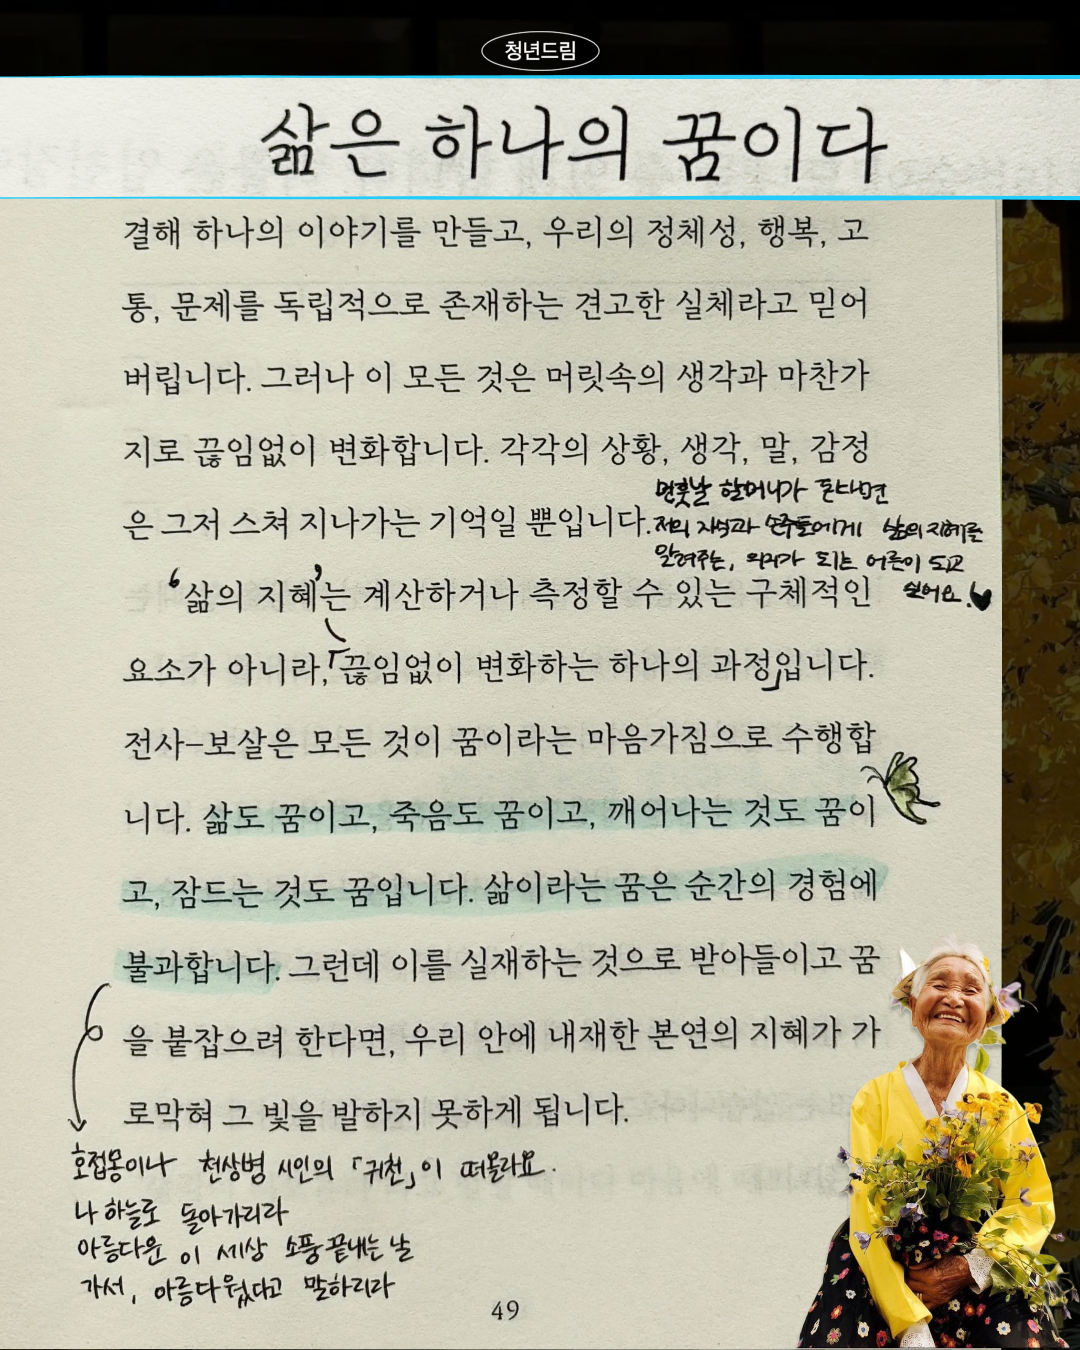 청년드림
삶은 하나의 꿈이다
결해 하나의 이야기를 만들고, 우리의 정체성, 행복, 고
통, 문제를 독립적으로 존재하는 견고한 실체라고 믿어
버립니다. 그러나 이 모든 것은 머릿속의 생각과 마찬가
지로 끊임없이 변화합니다. 각각의 상황, 생각, 말, 감정
은 그저 스쳐 지나가는 기억일 뿐입니다.
먼훗날 할머니가 된다면
저의 자식과 손주들에게 삶의 지혜를
알려주는, 의지가 되는 어른이 되고
싶어요!
‘삶의 지혜’는 계산하거나 측정할 수 있는 구체적인
요소가 아니라,「끊임없이 변화하는 하나의 과정」입니다.
전사–보살은 모든 것이 꿈이라는 마음가짐으로 수행합
니다. 삶도 꿈이고, 죽음도 꿈이고, 깨어나는 것도 꿈이
고, 잠드는 것도 꿈입니다. 삶이라는 꿈은 순간의 경험에
불과합니다. 그런데 이를 실재하는 것으로 받아들이고 꿈
을 붙잡으려 한다면, 우리 안에 내재한 본연의 지혜가 가
로막혀 그 빛을 발하지 못하게 됩니다.
호접몽이나 천상병 시인의 「귀천」이 떠올라요.
나 하늘로 돌아가리라
아름다운 이 세상 소풍 끝내는 날
가서, 아름다웠다고 말하리라
49